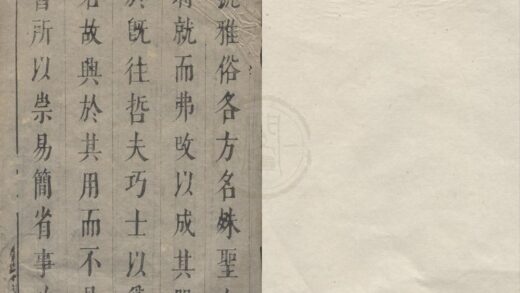 雅俗各方名姝聖
就而弗改以成其
既往哲夫巧士以
故興於其用而不
所以崇易簡省事